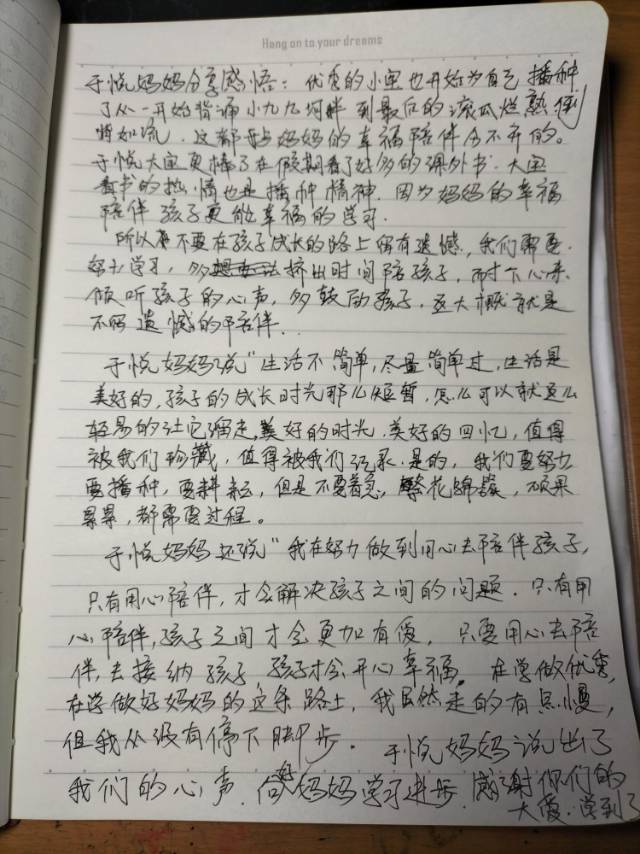 Hang on to your dreams
于悦妈妈分享感悟：优秀的小宝也开始为自己播种
了从一开始背诵小九九 到最后的滚瓜烂熟倒
如流．这都与妈妈的幸福陪伴分不开的。
于悦大宝更棒了在假期看了好多的课外书．大宝
看书的热情也是播种精神．因为妈妈的幸福
陪伴孩子更能幸福的学习．
所以不要在孩子成长的路上留有遗憾，我们需要
努力学习，多挤出时间陪孩子，耐下心来
倾听孩子的心声，多鼓励孩子．这大概就是
不留遗憾的陪伴．
于悦妈妈说“生活不简单，尽量简单过，生活是
美好的，孩子的成长时光那么短暂，怎么可以就这么
轻易的让它溜走，美好的时光．美好的回忆，值得
被我们珍藏，值得被我们记录．是的，我们要努力
要播种，要耕耘，但是不要着急，繁花锦簇，硕果
累累，都需要过程。
于悦妈妈还说“我在努力做到用心去陪伴孩子，
只有用心陪伴，才会解决孩子之间的问题．只有用
心陪伴，孩子之间才会更加有爱，只要用心去陪
伴，去接纳孩子，孩子才会开心幸福．在学做优秀，
在学做好妈妈的这条路上，我虽然走的有点慢，
但我从没有停下脚步．于悦妈妈说出了
我们的心声．向好妈妈学习进步．感谢你们的
大爱．学到了